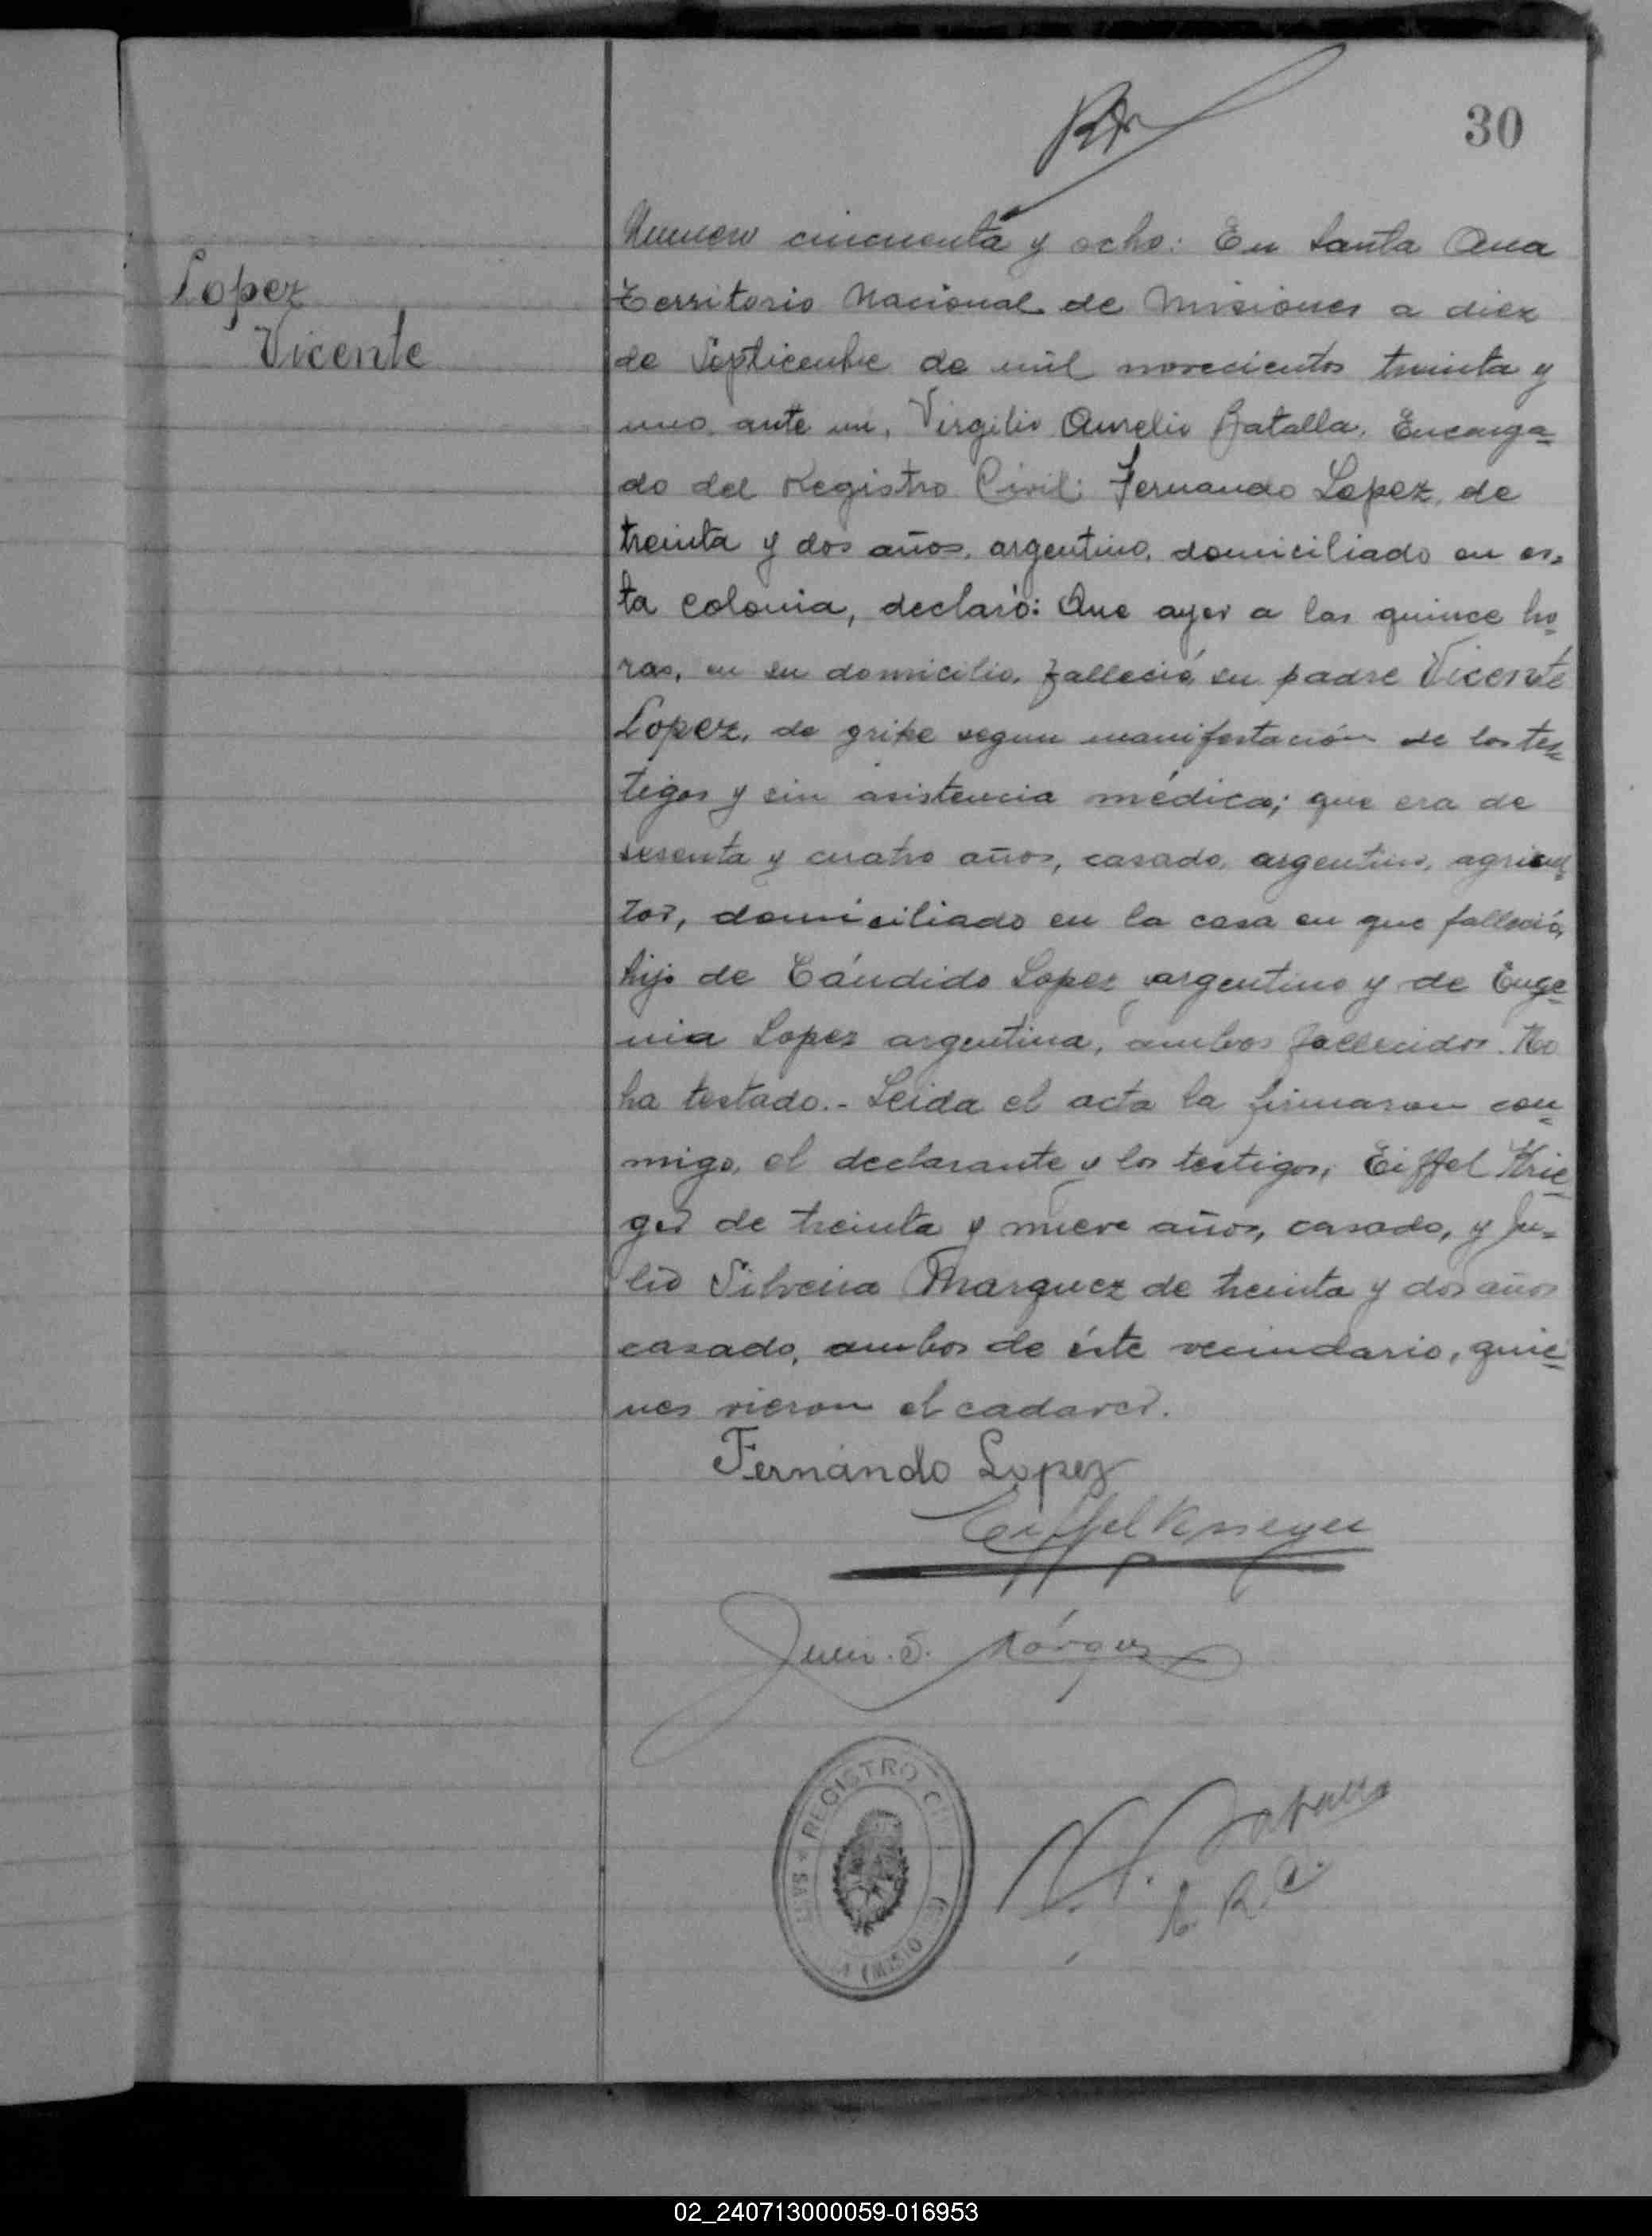 30
Lopez
Vicente
Numero cincuenta y ocho: En Santa Ana
Territorio Nacional de Misiones a diez
de Septiembre de mil novecientos treinta y
uno, ante mi, Virgilio Aurelio Batalla, Encarga=
do del Registro Civil: Fernando Lopez, de
treinta y dos años, argentino, domiciliado en es=
ta colonia, declaró: Que ayer a las quince ho=
ras, en su domicilio, falleció su padre Vicente
Lopez, de gripe segun manifestación de los tes=
tigos y sin asistencia médica; que era de
sesenta y cuatro años, casado, argentino, agricul=
tor, domiciliado en la casa en que falleció,
hijo de Cándido Lopez argentino y de Euge=
nia Lopez argentina, ambos fallecidos. No
ha testado.- Leida el acta la firmaron con=
migo, el declarante y los testigos, Eiffel Krie=
ger de treinta y nueve años, casado, y Ju=
lio Silveira Marquez de treinta y dos años
casado, ambos de éste vecindario, quie=
nes vieron el cadaver.
Fernándo Lopez
Eiffel Krieger
S. Márquez
V. A. Batalla
E. R. C.
REGISTRO CIVIL
SANTA ANA (MISIONES)
02_240713000059-016953